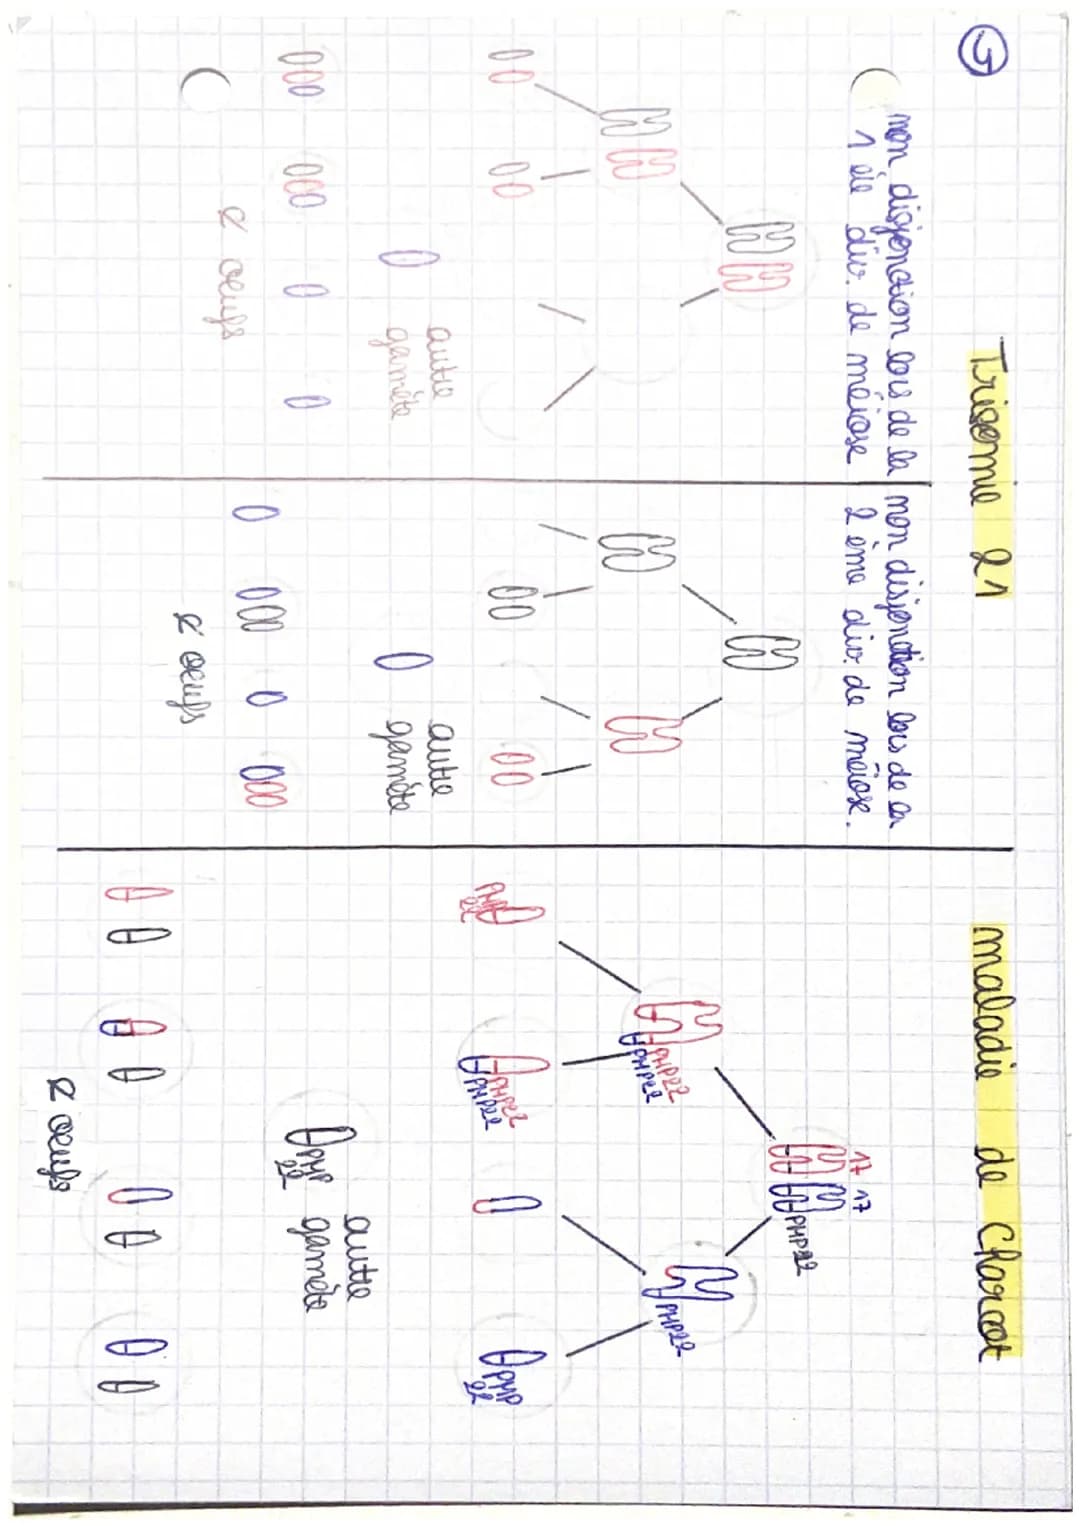 5
Trisomie 21
non disjonction lors de la
1 ère div. de méiose
autre
gamète
œufs
non disjonction lors de la
2 ème div. de méiose.
autre
gamète
œufs
maladie de Charcot
17 17
PMP22
PMP22
PMP22
PMP22
PMP
22
PMP22
PMP22
PMP
22
autre
gamète
PMP
22
œufs